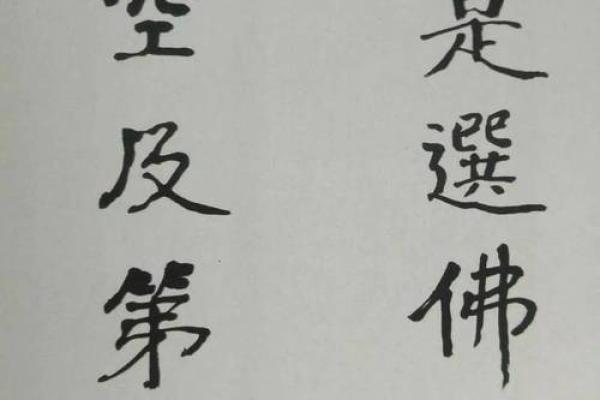 是選佛
空及第